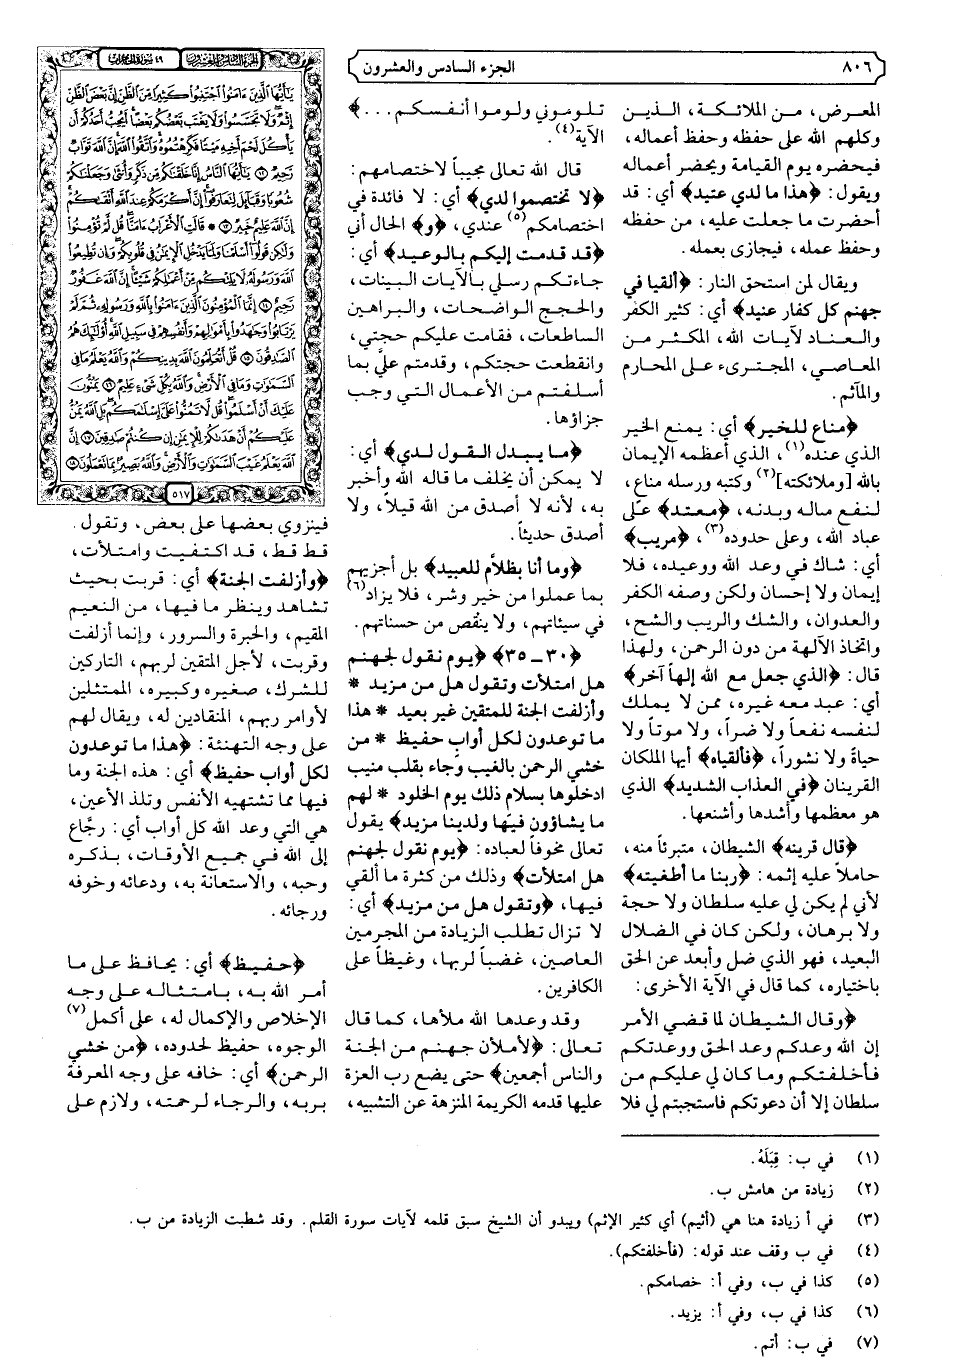 ٨٠٦
الجزء السادس والعشرون
المعرض، من الملائكة، الذين
وكلهم الله على حفظه وحفظ أعماله،
فيحضره يوم القيامة ويحضر أعماله
ويقول: ﴿هذا ما لدي عتيد﴾ أي: قد
أحضرت ما جعلت عليه، من حفظه
وحفظ عمله، فيجازى بعمله.
ويقال لمن استحق النار: ﴿ألقيا في
جهنم كل كفار عنيد﴾ أي: كثير الكفر
والعناد لآيات الله، المكثر من
المعاصي، المجترىء على المحارم
والمآثم.
﴿مناع للخير﴾ أي: يمنع الخير
الذي عنده(١)، الذي أعظمه الإيمان
بالله [وملائكته](٢) وكتبه ورسله مناع،
لنفع ماله وبدنه، ﴿معتد﴾ على
عباد الله، وعلى حدوده(٣)، ﴿مريب﴾
أي: شاك في وعد الله ووعيده، فلا
إيمان ولا إحسان ولكن وصفه الكفر
والعدوان، والشك والريب والشح،
واتخاذ الآلهة من دون الرحمن، ولهذا
قال: ﴿الذي جعل مع الله إلهاً آخر﴾
أي: عبد معه غيره، ممن لا يملك
لنفسه نفعاً ولا ضراً، ولا موتاً ولا
حياة ولا نشوراً، ﴿فألقياه﴾ أيها الملكان
القرينان ﴿في العذاب الشديد﴾ الذي
هو معظمها وأشدها وأشنعها.
﴿قال قرينه﴾ الشيطان، متبرئاً منه،
حاملاً عليه إثمه: ﴿ربنا ما أطغيته﴾
لأني لم يكن لي عليه سلطان ولا حجة
ولا برهان، ولكن كان في الضلال
البعيد، فهو الذي ضل وأبعد عن الحق
باختياره، كما قال في الآية الأخرى:
﴿وقال الشيطان لما قضي الأمر
إن الله وعدكم وعد الحق ووعدتكم
فأخلفتكم وما كان لي عليكم من
سلطان إلا أن دعوتكم فاستجبتم لي فلا
تلوموني ولوموا أنفسكم...﴾
الآية(٤).
قال الله تعالى مجيباً لاختصامهم:
﴿لا تختصموا لدي﴾ أي: لا فائدة في
اختصامكم(٥) عندي، ﴿و﴾ الحال أني
﴿قد قدمت إليكم بالوعيد﴾ أي:
جاءتكم رسلي بالآيات البينات،
والحجج الواضحات، والبراهين
الساطعات، فقامت عليكم حجتي،
وانقطعت حجتكم، وقدمتم عليَّ بما
أسلفتم من الأعمال التي وجب
جزاؤها.
﴿ما يبدل القول لدي﴾ أي:
لا يمكن أن يخلف ما قاله الله وأخبر
به، لأنه لا أصدق من الله قيلاً، ولا
أصدق حديثاً.
﴿وما أنا بظلاَّم للعبيد﴾ بل أجزيهم
بما عملوا من خير وشر، فلا يزاد(٦)
في سيئاتهم، ولا ينقص من حسناتهم.
﴿٣٠ـ٣٥﴾ ﴿يوم نقول لجهنم
هل امتلأت وتقول هل من مزيد *
وأزلفت الجنة للمتقين غير بعيد * هذا
ما توعدون لكل أواب حفيظ * من
خشي الرحمن بالغيب وجاء بقلب منيب
ادخلوها بسلام ذلك يوم الخلود * لهم
ما يشاؤون فيها ولدينا مزيد﴾ يقول
تعالى مخوفاً لعباده: ﴿يوم نقول لجهنم
هل امتلأت﴾ وذلك من كثرة ما ألقي
فيها، ﴿وتقول هل من مزيد﴾ أي:
لا تزال تطلب الزيادة من المجرمين
العاصين، غضباً لربها، وغيظاً على
الكافرين.
وقد وعدها الله ملأها، كما قال
تعالى: ﴿لأملأن جهنم من الجنة
والناس أجمعين﴾ حتى يضع رب العزة
عليها قدمه الكريمة المنزهة عن التشبيه،
الجزء السادس والعشرون
٤٩ سورة الحجرات
يَٰٓأَيُّهَا ٱلَّذِينَ ءَامَنُوا۟ ٱجْتَنِبُوا۟ كَثِيرًا مِّنَ ٱلظَّنِّ إِنَّ بَعْضَ ٱلظَّنِّ
إِثْمٌ وَلَا تَجَسَّسُوا۟ وَلَا يَغْتَب بَّعْضُكُم بَعْضًا أَيُحِبُّ أَحَدُكُمْ أَن
يَأْكُلَ لَحْمَ أَخِيهِ مَيْتًا فَكَرِهْتُمُوهُ وَٱتَّقُوا۟ ٱللَّهَ إِنَّ ٱللَّهَ تَوَّابٌ
رَّحِيمٌ ١٢ يَٰٓأَيُّهَا ٱلنَّاسُ إِنَّا خَلَقْنَٰكُم مِّن ذَكَرٍ وَأُنثَىٰ وَجَعَلْنَٰكُمْ
شُعُوبًا وَقَبَآئِلَ لِتَعَارَفُوٓا۟ إِنَّ أَكْرَمَكُمْ عِندَ ٱللَّهِ أَتْقَىٰكُمْ
إِنَّ ٱللَّهَ عَلِيمٌ خَبِيرٌ ١٣ * قَالَتِ ٱلْأَعْرَابُ ءَامَنَّا قُل لَّمْ تُؤْمِنُوا۟
وَلَٰكِن قُولُوٓا۟ أَسْلَمْنَا وَلَمَّا يَدْخُلِ ٱلْإِيمَٰنُ فِى قُلُوبِكُمْ وَإِن تُطِيعُوا۟
ٱللَّهَ وَرَسُولَهُۥ لَا يَلِتْكُم مِّنْ أَعْمَٰلِكُمْ شَيْـًٔا إِنَّ ٱللَّهَ غَفُورٌ
رَّحِيمٌ ١٤ إِنَّمَا ٱلْمُؤْمِنُونَ ٱلَّذِينَ ءَامَنُوا۟ بِٱللَّهِ وَرَسُولِهِۦ ثُمَّ لَمْ
يَرْتَابُوا۟ وَجَٰهَدُوا۟ بِأَمْوَٰلِهِمْ وَأَنفُسِهِمْ فِى سَبِيلِ ٱللَّهِ أُو۟لَٰٓئِكَ هُمُ
ٱلصَّٰدِقُونَ ١٥ قُلْ أَتُعَلِّمُونَ ٱللَّهَ بِدِينِكُمْ وَٱللَّهُ يَعْلَمُ مَا فِى
ٱلسَّمَٰوَٰتِ وَمَا فِى ٱلْأَرْضِ وَٱللَّهُ بِكُلِّ شَىْءٍ عَلِيمٌ ١٦ يَمُنُّونَ
عَلَيْكَ أَنْ أَسْلَمُوا۟ قُل لَّا تَمُنُّوا۟ عَلَىَّ إِسْلَٰمَكُم بَلِ ٱللَّهُ يَمُنُّ
عَلَيْكُمْ أَنْ هَدَىٰكُمْ لِلْإِيمَٰنِ إِن كُنتُمْ صَٰدِقِينَ ١٧ إِنَّ
ٱللَّهَ يَعْلَمُ غَيْبَ ٱلسَّمَٰوَٰتِ وَٱلْأَرْضِ وَٱللَّهُ بَصِيرٌۢ بِمَا تَعْمَلُونَ ١٨
٥١٧
فينزوي بعضها على بعض، وتقول.
قط قط، قد اكتفيت وامتلأت،
﴿وأزلفت الجنة﴾ أي: قربت بحيث
تشاهد وينظر ما فيها، من النعيم
المقيم، والحبرة والسرور، وإنما أزلفت
وقربت، لأجل المتقين لربهم، التاركين
للشرك، صغيره وكبيره، الممتثلين
لأوامر ربهم، المنقادين له، ويقال لهم
على وجه التهنئة: ﴿هذا ما توعدون
لكل أواب حفيظ﴾ أي: هذه الجنة وما
فيها مما تشتهيه الأنفس وتلذ الأعين،
هي التي وعد الله كل أواب أي: رجَّاع
إلى الله في جميع الأوقات، بذكره
وحبه، والاستعانة به، ودعائه وخوفه
ورجائه.
﴿حفيظ﴾ أي: يحافظ على ما
أمر الله به، بامتثاله على وجه
الإخلاص والإكمال له، على أكمل(٧)
الوجوه، حفيظ لحدوده، ﴿من خشي
الرحمن﴾ أي: خافه على وجه المعرفة
بربه، والرجاء لرحمته، ولازم على
(١) في ب: قِبَلَهُ.
(٢) زيادة من هامش ب.
(٣) في أ زيادة هنا هي (أثيم) أي كثير الإثم) ويبدو أن الشيخ سبق قلمه لآيات سورة القلم. وقد شطبت الزيادة من ب.
(٤) في ب وقف عند قوله: (فأخلفتكم).
(٥) كذا في ب، وفي أ: خصامكم.
(٦) كذا في ب، وفي أ: يزيد.
(٧) في ب: أتم.